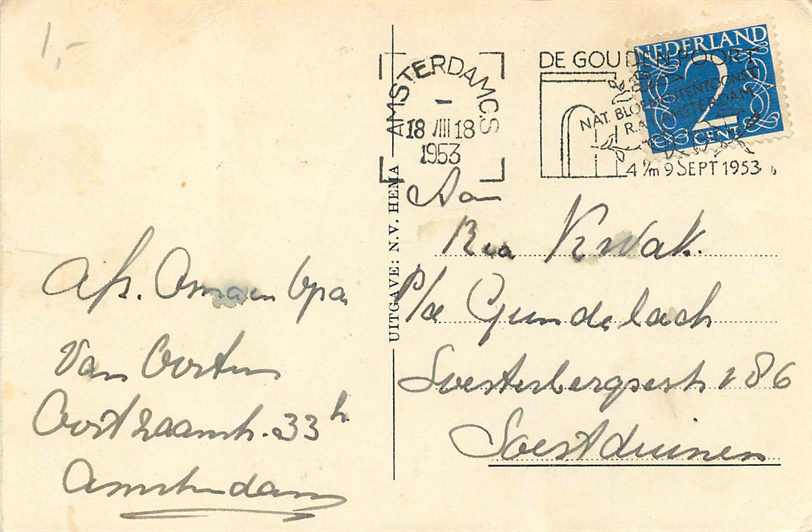 1,-
AMSTERDAM CS
18 VIII 18
1953
DE GOUDEN POORT
NAT. BLOEMENTENTOONST.
R.A.I. AMSTERDAM
4 t/m 9 SEPT 1953
NEDERLAND
2
CENT
UITGAVE: N.V. HEMA
Afs. Oma en Opa
Van Oosten
Oostzaanstr. 33 h
Amsterdam
Aan
Ria Kwak.
P/a Gundelach
Soesterbergsestr 186
Soestduinen